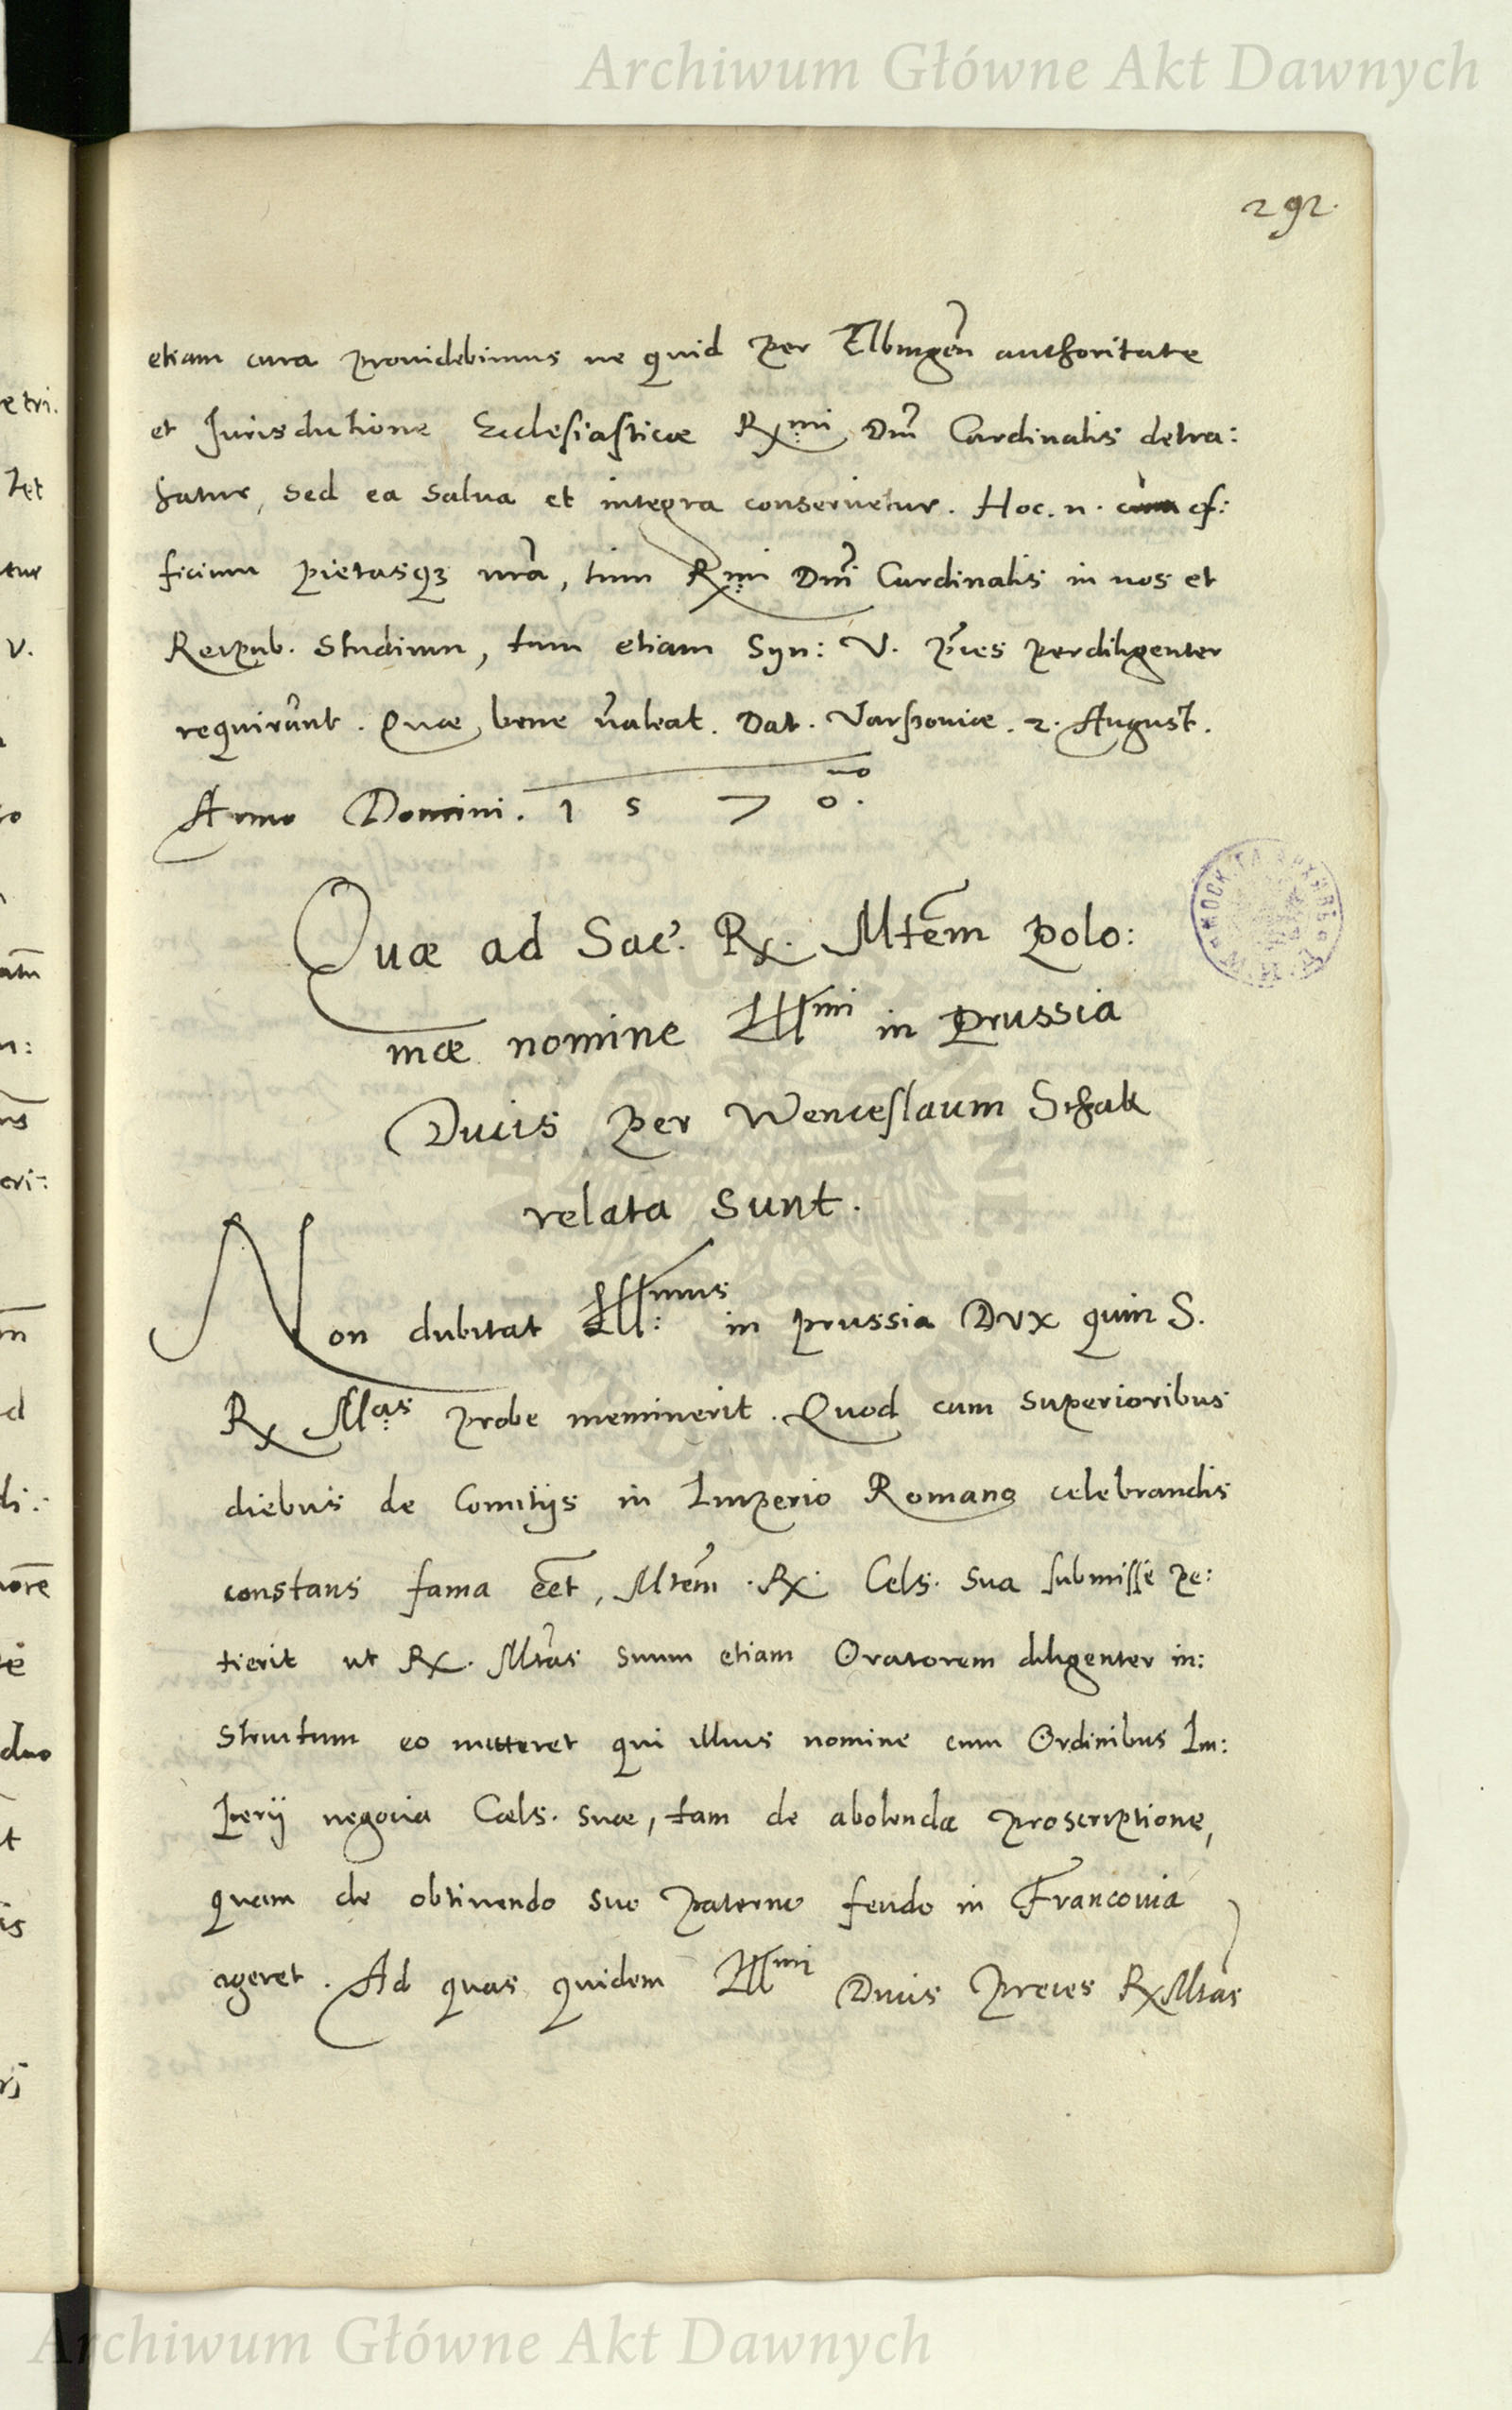 Archiwum Główne Akt Dawnych
292.
etiam cura prouidebimus ne quid per Elbingeñ authoritate
et Jurisdictione Ecclesiasticæ Rx^mi Dñi Cardinalis detra:
hatur, sed ea salua et integra conseruetur. Hoc. n. cum of:
ficium pietasq3 nr̃a, tum R^mi Dñi Cardinalis in nos et
Reipub. studium, tum etiam Syn: V. p̃ces perdiligenter
requirunt. Quæ bene ualeat. Dat. Varssouiæ. 2. August.
Anno Domini. 1 5 7 0.^mo
Quæ ad Sac. Rx. Mtem̃ Polo:
niæ nomine Ill^mi in Prussia
Ducis per Wenceslaum Schak
relata sunt.
Non dubitat Ill:^mus in prussia Dux quin S.
Rx M^as probe meminerit. Quod cum superioribus
diebus de Comitijs in Imperio Romano celebrandis
constans fama eẽt, Mtem̃ . Rx. Cels. Sua submisse pe:
tierit ut Rx. Mtas suum etiam Oratorem diligenter in:
structum eo mitteret qui illius nomine cum Ordinibus Im:
perij negocia Cæls. suæ, tam de abolenda proscriptione,
quam de obtinendo suo paterno feudo in Franconia
ageret. Ad quas quidem Ill^mi Ducis preces Rx Mtas
Archiwum Główne Akt Dawnych